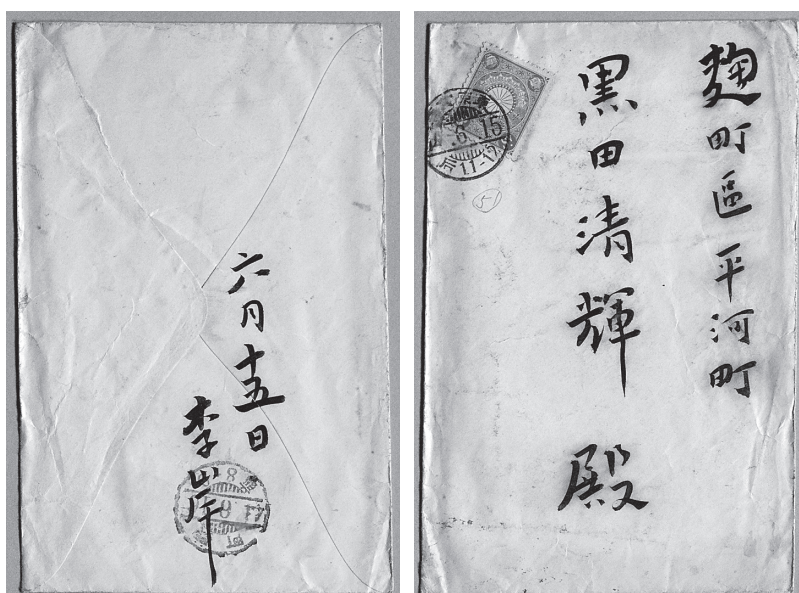 六月十五日
李岸
麹町區平河町
黒田清輝殿
6.15
11-12
5-1